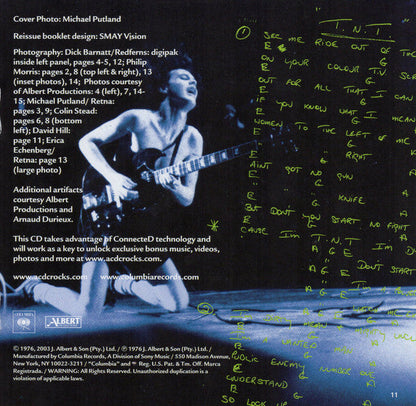 Cover Photo: Michael Putland
Reissue booklet design: SMAY Vision
Photography: Dick Barnatt/Redferns: digipak
inside left panel, pages 4-5, 12; Philip
Morris: pages 2, 8 (top left & right), 13
(inset photos), 14; Photos courtesy
of Albert Productions: 4 (left), 7, 14-
15; Michael Putland/ Retna:
pages 3, 9; Colin Stead:
pages 6, 8 (bottom
left); David Hill:
page 11; Erica
Echenberg/
Retna: page 13
(large photo)
Additional artifacts
courtesy Albert
Productions and
Arnaud Durieux.
This CD takes advantage of ConnecteD technology and
will work as a key to unlock exclusive bonus music, videos,
photos and more at www.acdcrocks.com.
www.acdcrocks.com www.columbiarecords.com
COLUMBIA
ALBERT
PRODUCTIONS
© 1976, 2003 J. Albert & Son (Pty.) Ltd. / ℗ 1976 J. Albert & Son (Pty.) Ltd. /
Manufactured by Columbia Records, A Division of Sony Music / 550 Madison Avenue,
New York, NY 10022-3211 / "Columbia" and Reg. U.S. Pat. & Tm. Off. Marca
Registrada. / WARNING: All Rights Reserved. Unauthorized duplication is a
violation of applicable laws.
T.N.T.
1 SEE ME RIDE OUT OF THE
E G
ON YOUR COLOUR T.V
E G
OUT FOR ALL THAT I CAN
E G
IF YOU KNOW WHAT I MEAN
WOMEN TO THE LEFT OF ME
E G
" " " RIGHT
E G
AINT GOT NO GUN
E G
" " " KNIFE
E G
BUT DON'T YOU START NO FIGHT
* CAUSE I'M T.N.T I'M
A G E
T.N.T
A G E
2
PUBLIC ENEMY NUMBER ONE
UNDERSTAND
SO LOCK UP
11